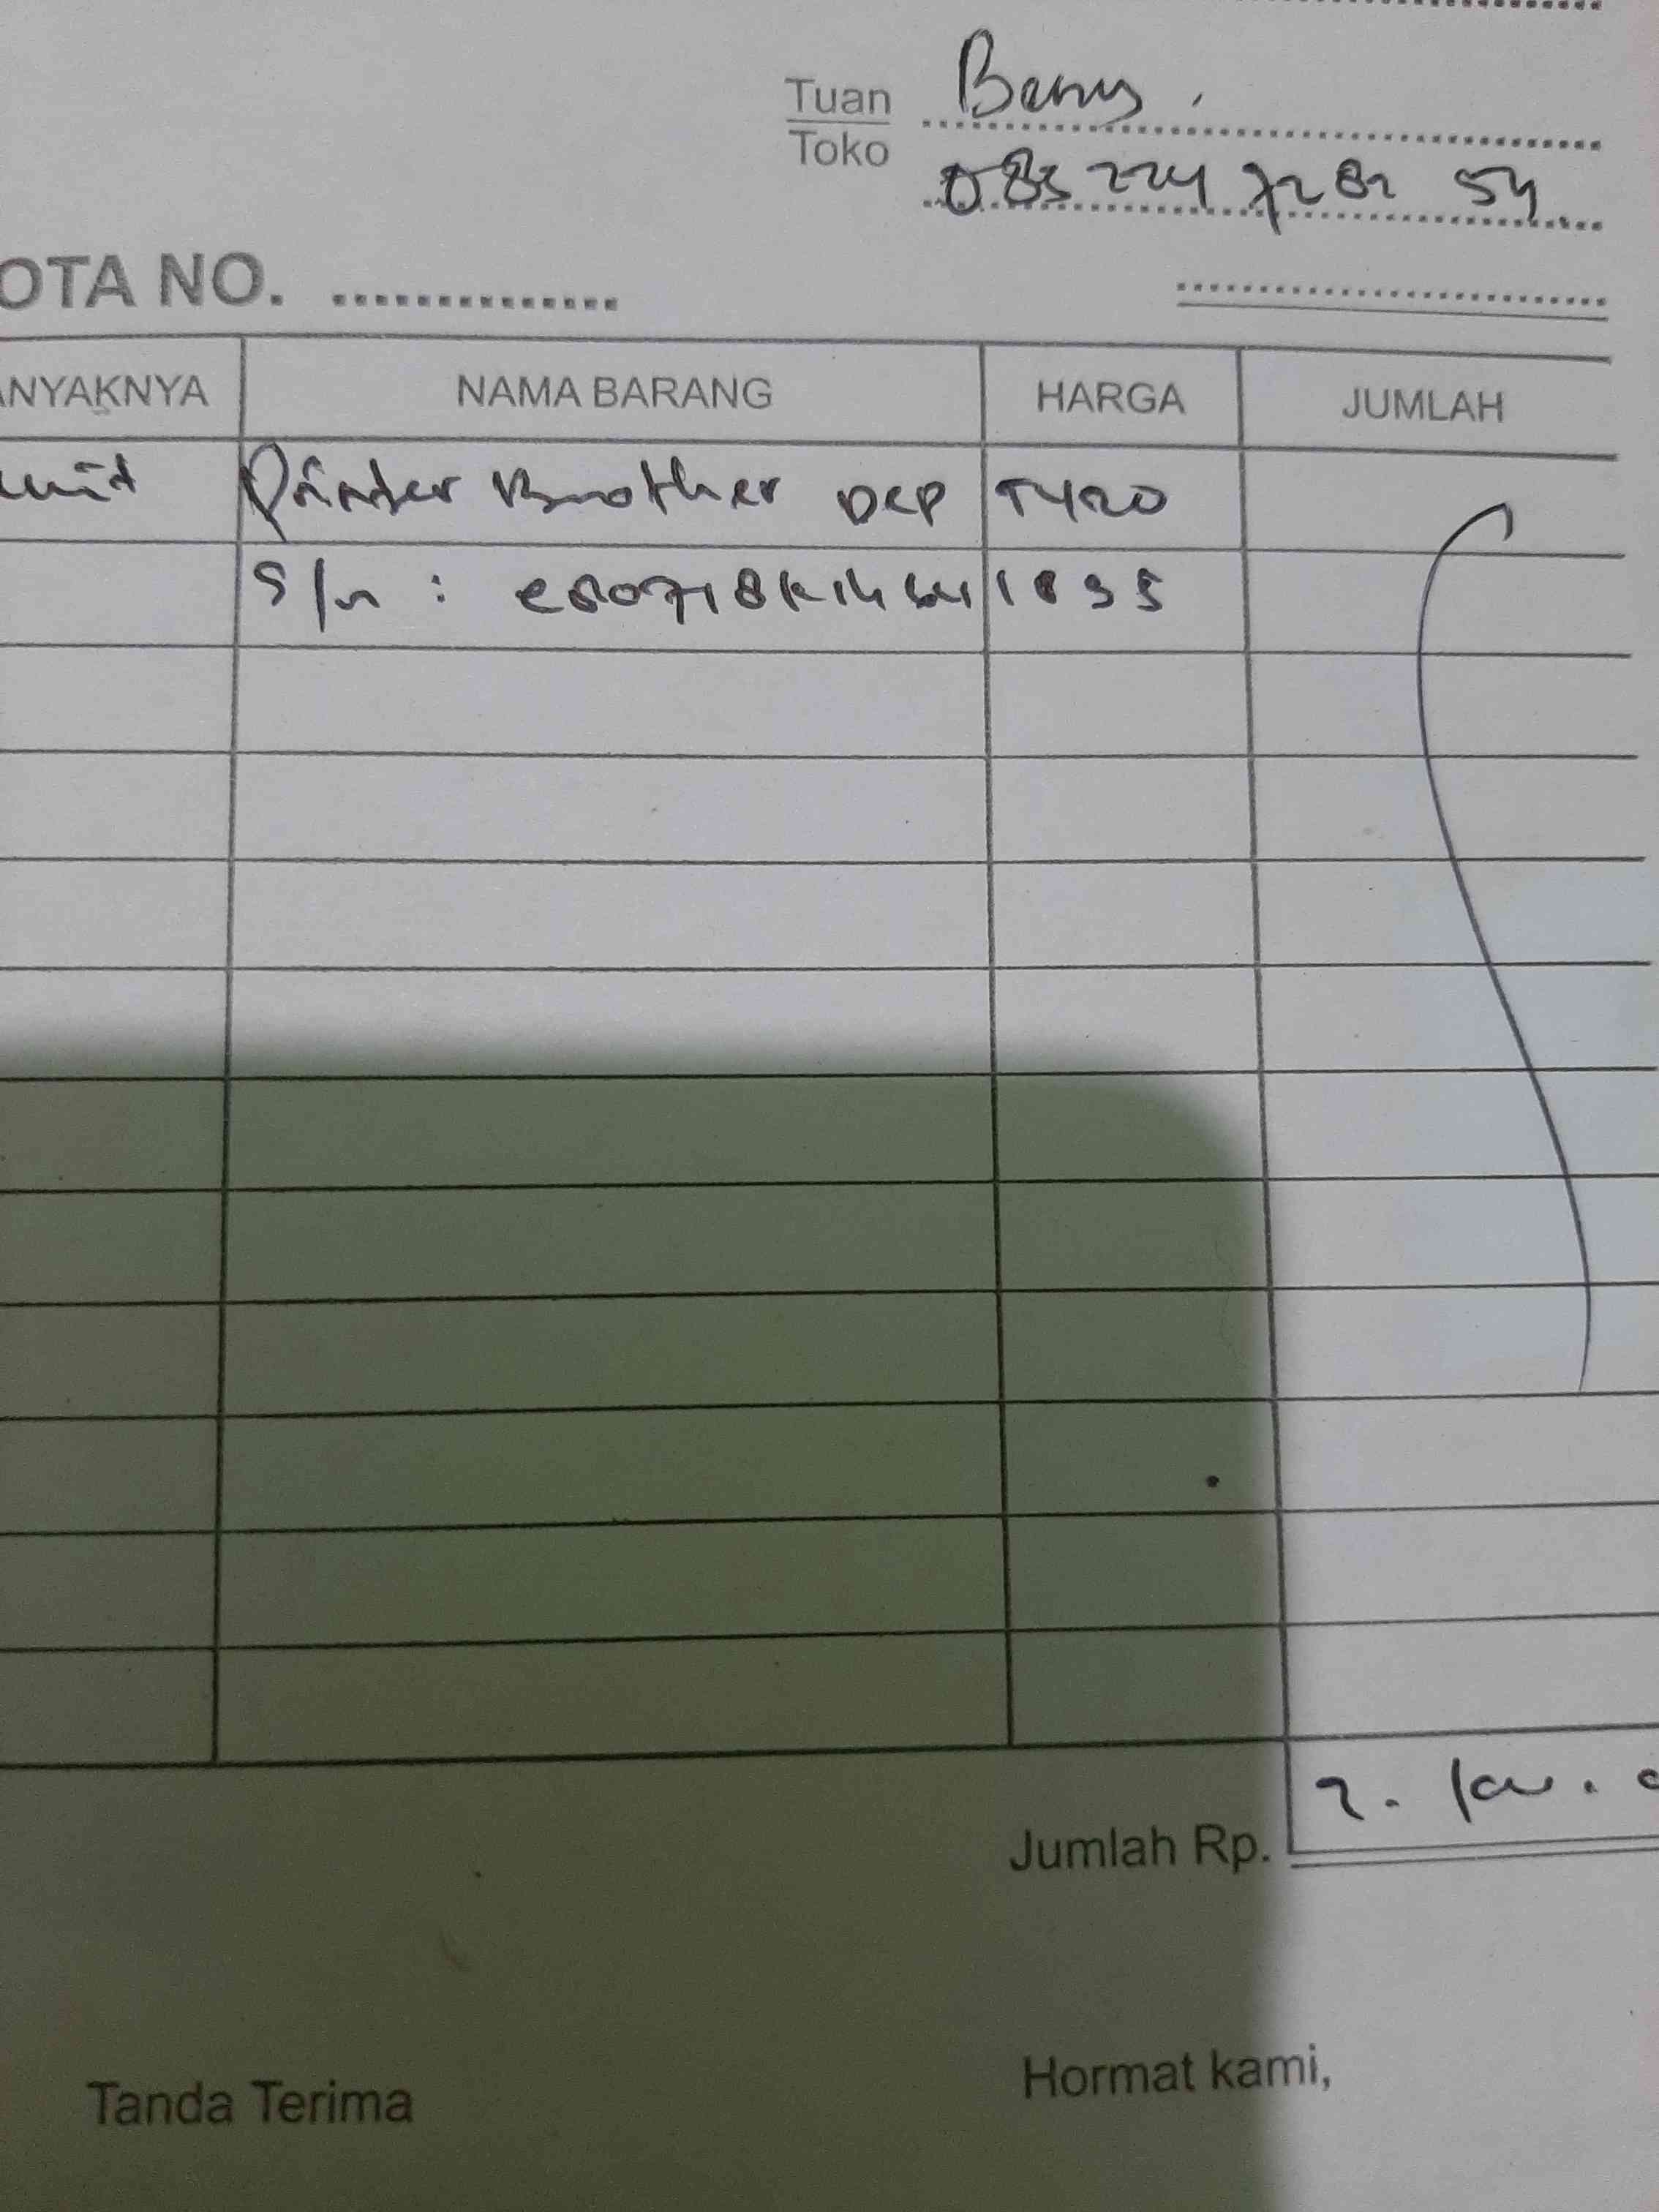 Tuan Beny.
Toko 085 224 7282 54
OTA NO. ...............
ANYAKNYA NAMA BARANG HARGA JUMLAH
unit Printer Brother DCP T420
S/n :
Jumlah Rp. 2.
Tanda Terima Hormat kami,